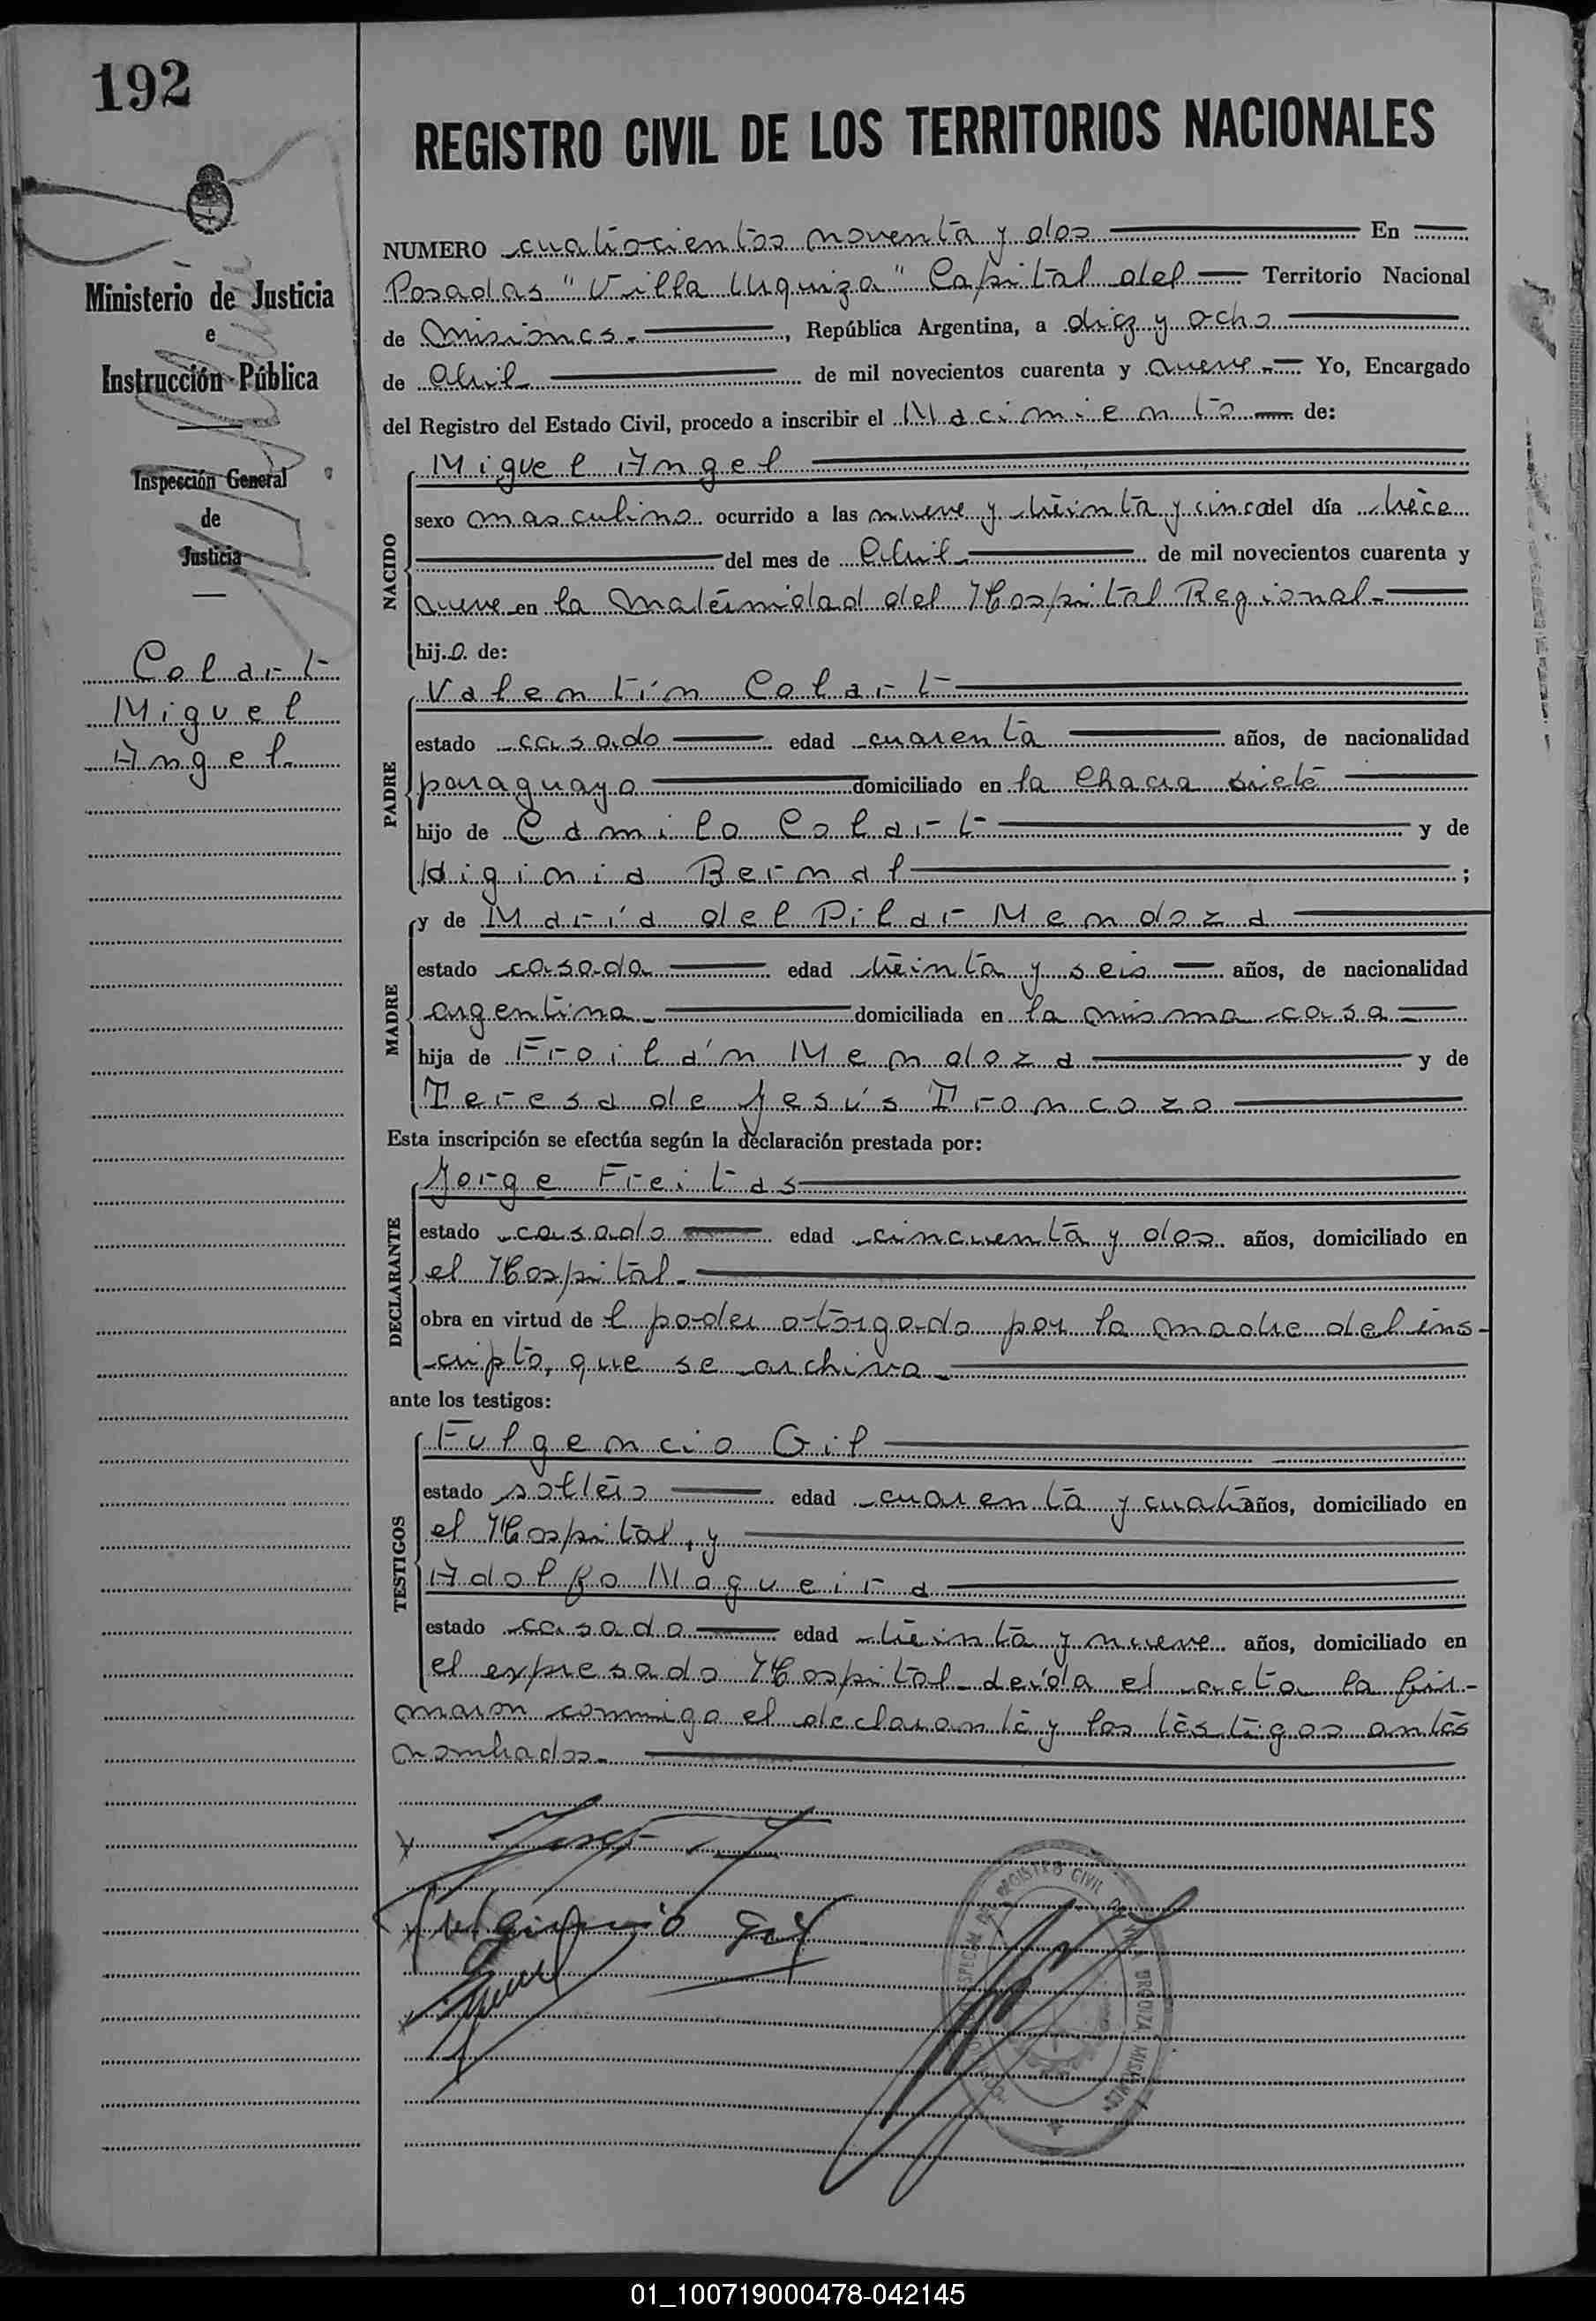 192
REGISTRO CIVIL DE LOS TERRITORIOS NACIONALES
Ministerio de Justicia
e
Instrucción Pública
Inspección General
de
Justicia
Colart
Miguel
Angel.
NUMERO cuatrocientos noventa y dos En
Posadas "Villa Urquiza" Capital del Territorio Nacional
de Misiones.-, República Argentina, a diez y ocho
de Abril de mil novecientos cuarenta y nueve.- Yo, Encargado
del Registro del Estado Civil, procedo a inscribir el Nacimiento de:
NACIDO
Miguel Angel
sexo masculino ocurrido a las nueve y treinta y cinco del día trece
del mes de Abril de mil novecientos cuarenta y
nueve en la Maternidad del Hospital Regional-
hijo de:
PADRE
Valentín Colart
estado casado edad cuarenta años, de nacionalidad
paraguayo domiciliado en la Chacra siete
hijo de Camilo Colart y de
Higinia Bernal ;
MADRE
y de María del Pilar Mendoza
estado casada edad treinta y seis años, de nacionalidad
argentina domiciliada en la misma casa
hija de Froilán Mendoza y de
Teresa de Jesús Troncozo
Esta inscripción se efectúa según la declaración prestada por:
DECLARANTE
Jorge Freitas
estado casado edad cincuenta y dos años, domiciliado en
el Hospital-
obra en virtud de l poder otorgado por la madre del ins-
cripto, que se archiva-
ante los testigos:
TESTIGOS
Fulgencio Gil
estado soltero edad cuarenta y cuatro años, domiciliado en
el Hospital, y
Adolfo Nogueira
estado casado edad treinta y nueve años, domiciliado en
el expresado Hospital- Leída el acta la fir-
maron conmigo el declarante y los testigos antes
nombrados.-
Fulgencio Gil
REGISTRO CIVIL
URQUIZA MISIONES
01_100719000478-042145